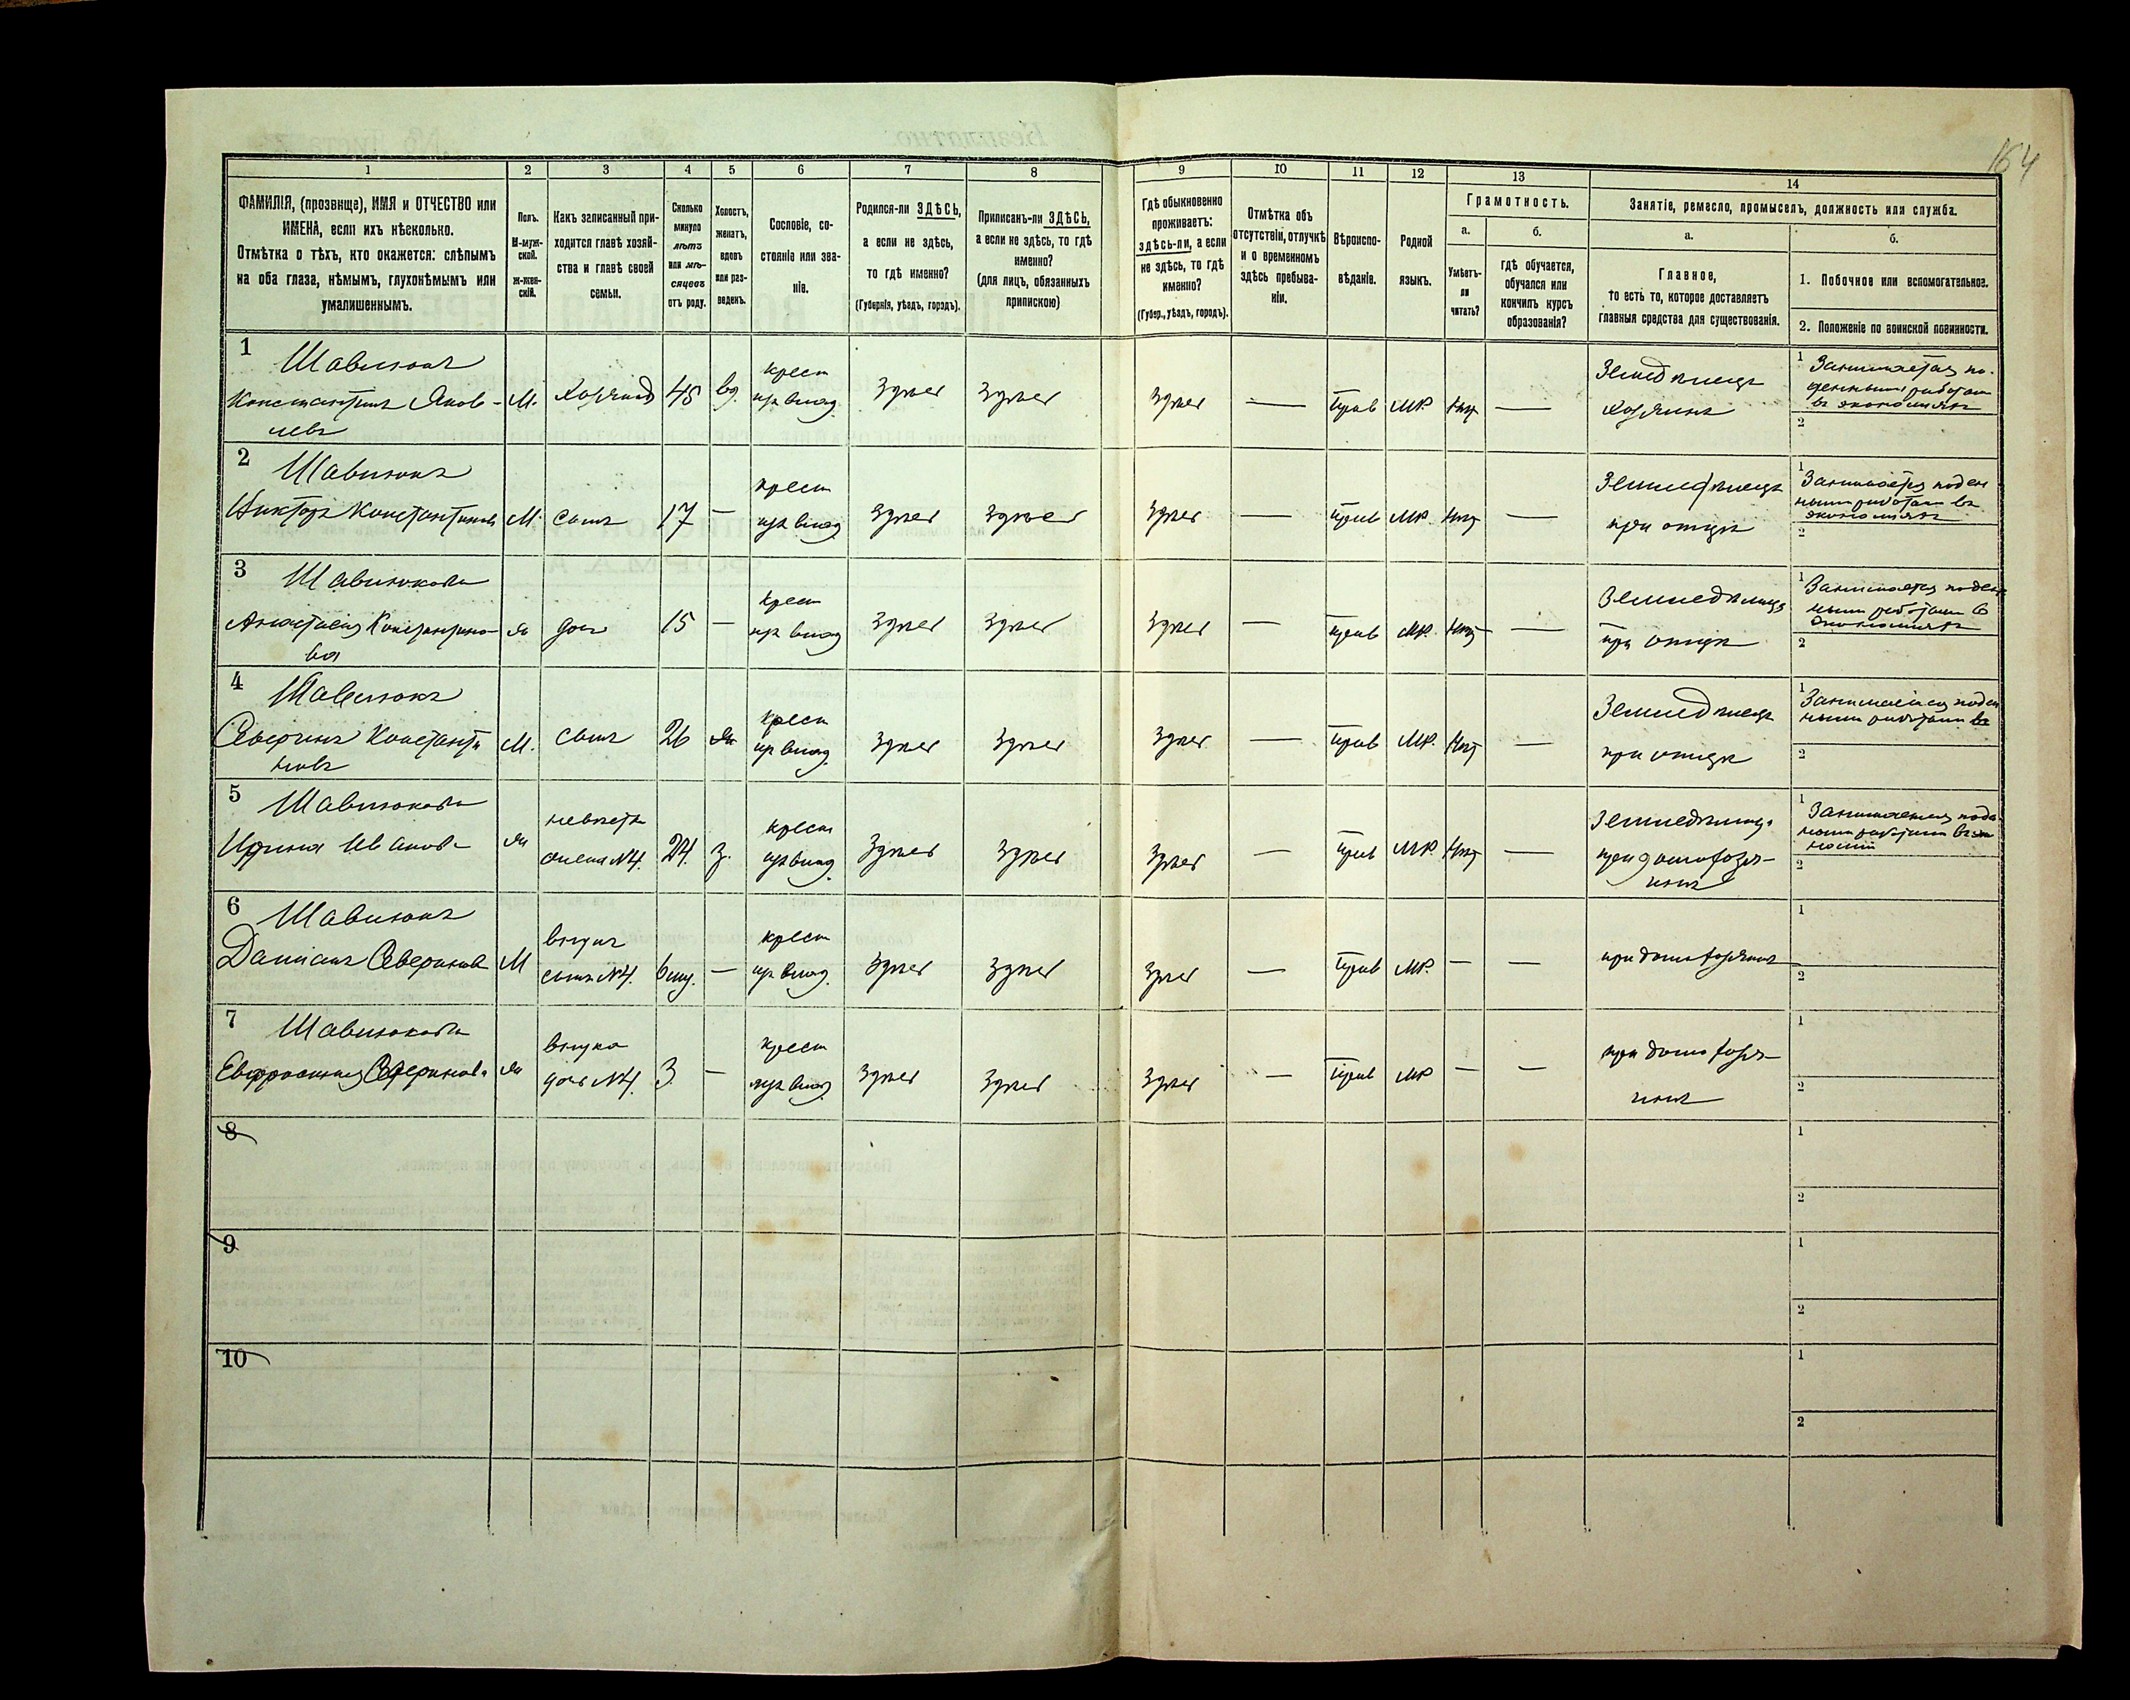 164
1
2
3
4
5
6
7
8
9
10
11
12
13
14
ФАМИЛІЯ, (прозвище), ИМЯ и ОТЧЕСТВО или
ИМЕНА, если ихъ нѣсколько.
Отмѣтка о тѣхъ, кто окажется: слѣпымъ
на оба глаза, нѣмымъ, глухонѣмымъ или
умалишеннымъ.
Полъ.
М-муж-
ской.
Ж-жен-
скій.
Какъ записанный при-
ходится главѣ хозяй-
ства и главѣ своей
семьи.
Сколько
минуло
лѣтъ
или мѣ-
сяцевъ
отъ роду.
Холостъ,
женатъ,
вдовъ
или раз-
веденъ.
Сословіе, со-
стояніе или зва-
ніе.
Родился-ли ЗДѢСЬ,
а если не здѣсь,
то гдѣ именно?
(Губернія, уѣздъ, городъ).
Приписанъ-ли ЗДѢСЬ,
а если не здѣсь, то гдѣ
именно?
(для лицъ, обязанныхъ
припискою)
Гдѣ обыкновенно
проживаетъ:
здѣсь-ли, а если
не здѣсь, то гдѣ
именно?
(Губер., уѣздъ, городъ).
Отмѣтка объ
отсутствіи, отлучкѣ
и о временномъ
здѣсь пребыва-
ніи.
Вѣроиспо-
вѣданіе.
Родной
языкъ.
Грамотность.
а.
Умѣетъ-
ли
читать?
б.
гдѣ обучается,
обучался или
кончилъ курсъ
образованія?
Занятіе, ремесло, промыселъ, должность или служба.
а.
Главное,
то есть то, которое доставляетъ
главныя средства для существованія.
б.
1. Побочное или вспомогательное.
2. Положеніе по воинской повинности.
1
Шавлюкъ
Константинъ Яков-
левъ
М.
Хозяинъ
45
вд.
крест
из влад
здѣсь
здѣсь
здѣсь
—
прав
МР.
Нѣт
—
Земледѣлецъ
хозяинъ
1 Занимается по-
денными работам
въ экономіяхъ
2
2
Шавлюкъ
Викторъ Константиновъ
М.
сынъ
17
—
крест
из влад
здѣсь
здѣсь
здѣсь
—
прав
МР.
Нѣт
—
Земледѣлецъ
при отцѣ
1 Занимается поден
ными работам въ
экономіяхъ
2
3
Шавлюкова
Анастасія Константино-
ва
ж
доч
15
—
крест
из влад
здѣсь
здѣсь
здѣсь
—
прав
МР.
Нѣт
—
Земледѣлецъ
при отцѣ
1 Занимается поден
ными работам въ
экономіяхъ
2
4
Шавлюкъ
Северинъ Константи
новъ
М.
сынъ
26
ж
крест
из влад
здѣсь
здѣсь
здѣсь
—
прав
МР.
Нѣт
—
Земледѣлецъ
при отцѣ
1 Занимается поден
ными работами въ
2
5
Шавлюкова
Ирина Иванова
ж
невѣста
жена №4.
24.
з.
крест
из влад
здѣсь
здѣсь
здѣсь
—
прав
МР.
Нѣт
—
при домохозя-
инѣ
1 Занимается поден
2
6
Шавлюкъ
Даміанъ Северинов
М
внукъ
сынъ №4.
6 мц.
—
крест
из влад.
здѣсь
здѣсь
здѣсь
—
прав
МР.
—
—
при домохозяинѣ
1
2
7
Шавлюкова
Евфросинія Северинова
ж
внука
дочь №4.
3.
—
крест
из влад.
здѣсь
здѣсь
здѣсь
—
прав
МР
—
—
при домохозя-
инѣ
1
2
8
1
2
9
1
2
10
1
2